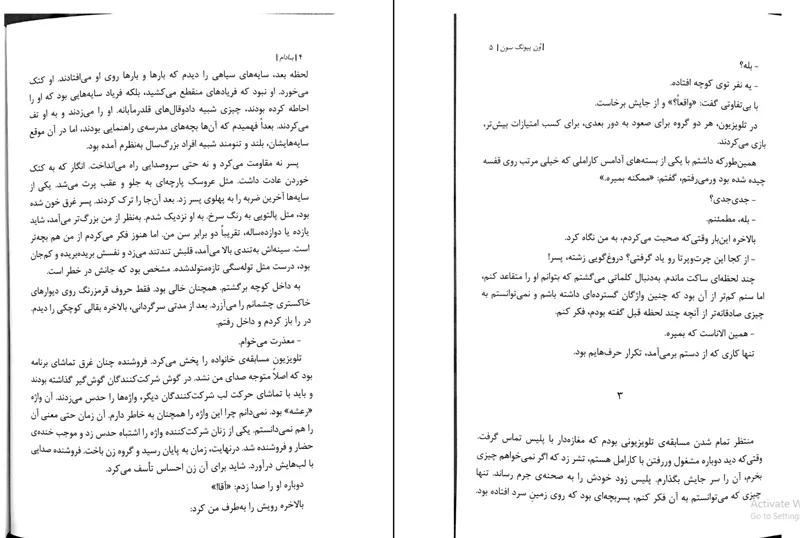 ۴ | بادام |
لحظه بعد، سایه‌های سیاهی را دیدم که بارها و بارها روی او می‌افتادند. او کتک
می‌خورد. او نبود که فریادهای منقطع می‌کشید، بلکه فریاد سایه‌هایی بود که او را
احاطه کرده بودند، چیزی شبیه دادوقال‌های قلدرمآبانه. او را می‌زدند و به او تف
می‌کردند. بعداً فهمیدم که آن‌ها بچه‌های مدرسه‌ی راهنمایی بودند، اما در آن موقع
سایه‌هایشان، بلند و تنومند شبیه افراد بزرگ‌سال به‌نظرم آمده بود.
پسر نه مقاومت می‌کرد و نه حتی سروصدایی راه می‌انداخت. انگار که به کتک
خوردن عادت داشت. مثل عروسک پارچه‌ای به جلو و عقب پرت می‌شد. یکی از
سایه‌ها آخرین ضربه را به پهلوی پسر زد. بعد آن‌جا را ترک کردند. پسر غرق خون شده
بود، مثل پالتویی به رنگ سرخ. به او نزدیک شدم. به‌نظر از من بزرگ‌تر می‌آمد، شاید
یازده یا دوازده‌ساله، تقریباً دو برابر سن من. اما هنوز فکر می‌کردم از من هم بچه‌تر
است. سینه‌اش به‌تندی بالا می‌آمد، قلبش تندتند می‌زد و نفسش بریده‌بریده و کم‌جان
بود، درست مثل توله‌سگی تازه‌متولدشده. مشخص بود که جانش در خطر است.
به داخل کوچه برگشتم. همچنان خالی بود. فقط حروف قرمزرنگ روی دیوارهای
خاکستری چشمانم را می‌آزرد. بعد از مدتی سرگردانی، بالاخره بقالی کوچکی را دیدم.
در را باز کردم و داخل رفتم.
- معذرت می‌خوام.
تلویزیون مسابقه‌ی خانواده را پخش می‌کرد. فروشنده چنان غرق تماشای برنامه
بود که اصلاً متوجه صدای من نشد. در گوش شرکت‌کنندگان گوش‌گیر گذاشته بودند
و باید با تماشای حرکت لب شرکت‌کنندگان دیگر، واژه‌ها را حدس می‌زدند. آن واژه
«رعشه» بود. نمی‌دانم چرا این واژه را همچنان به خاطر دارم. آن زمان حتی معنی آن
را هم نمی‌دانستم. یکی از زنان شرکت‌کننده واژه را اشتباه حدس زد و موجب خنده‌ی
حضار و فروشنده شد. درنهایت، زمان به پایان رسید و گروه زن باخت. فروشنده صدایی
با لب‌هایش درآورد. شاید برای آن زن احساس تأسف می‌کرد.
دوباره او را صدا زدم: «آقا!»
بالاخره رویش را به‌طرف من کرد:
| وُن پیونگ سون | ۵
- بله؟
- یه نفر توی کوچه افتاده.
با بی‌تفاوتی گفت: «واقعاً؟» و از جایش برخاست.
در تلویزیون، هر دو گروه برای صعود به دور بعدی، برای کسب امتیازات بیش‌تر،
بازی می‌کردند.
همین‌طورکه داشتم با یکی از بسته‌های آدامس کاراملی که خیلی مرتب روی قفسه
چیده شده بود ورمی‌رفتم، گفتم: «ممکنه بمیره.»
- جدی‌جدی؟
- بله، مطمئنم.
بالاخره این‌بار وقتی‌که صحبت می‌کردم، به من نگاه کرد.
- از کجا این چرت‌وپرتا رو یاد گرفتی؟ دروغ‌گویی زشته، پسر!
چند لحظه‌ای ساکت ماندم. به‌دنبال کلماتی می‌گشتم که بتوانم او را متقاعد کنم،
اما سنم کم‌تر از آن بود که چنین واژگان گسترده‌ای داشته باشم و نمی‌توانستم به
چیزی صادقانه‌تر از آنچه چند لحظه قبل گفته بودم، فکر کنم.
- همین الاناست که بمیره.
تنها کاری که از دستم برمی‌آمد، تکرار حرف‌هایم بود.
۳
منتظر تمام شدن مسابقه‌ی تلویزیونی بودم که مغازه‌دار با پلیس تماس گرفت.
وقتی‌که دید دوباره مشغول وررفتن با کارامل هستم، تشر زد که اگر نمی‌خواهم چیزی
بخرم، آن را سر جایش بگذارم. پلیس زود خودش را به صحنه‌ی جرم رساند. تنها
چیزی که می‌توانستم به آن فکر کنم، پسربچه‌ای بود که روی زمین سرد افتاده بود.
Activate W
Go to Setting